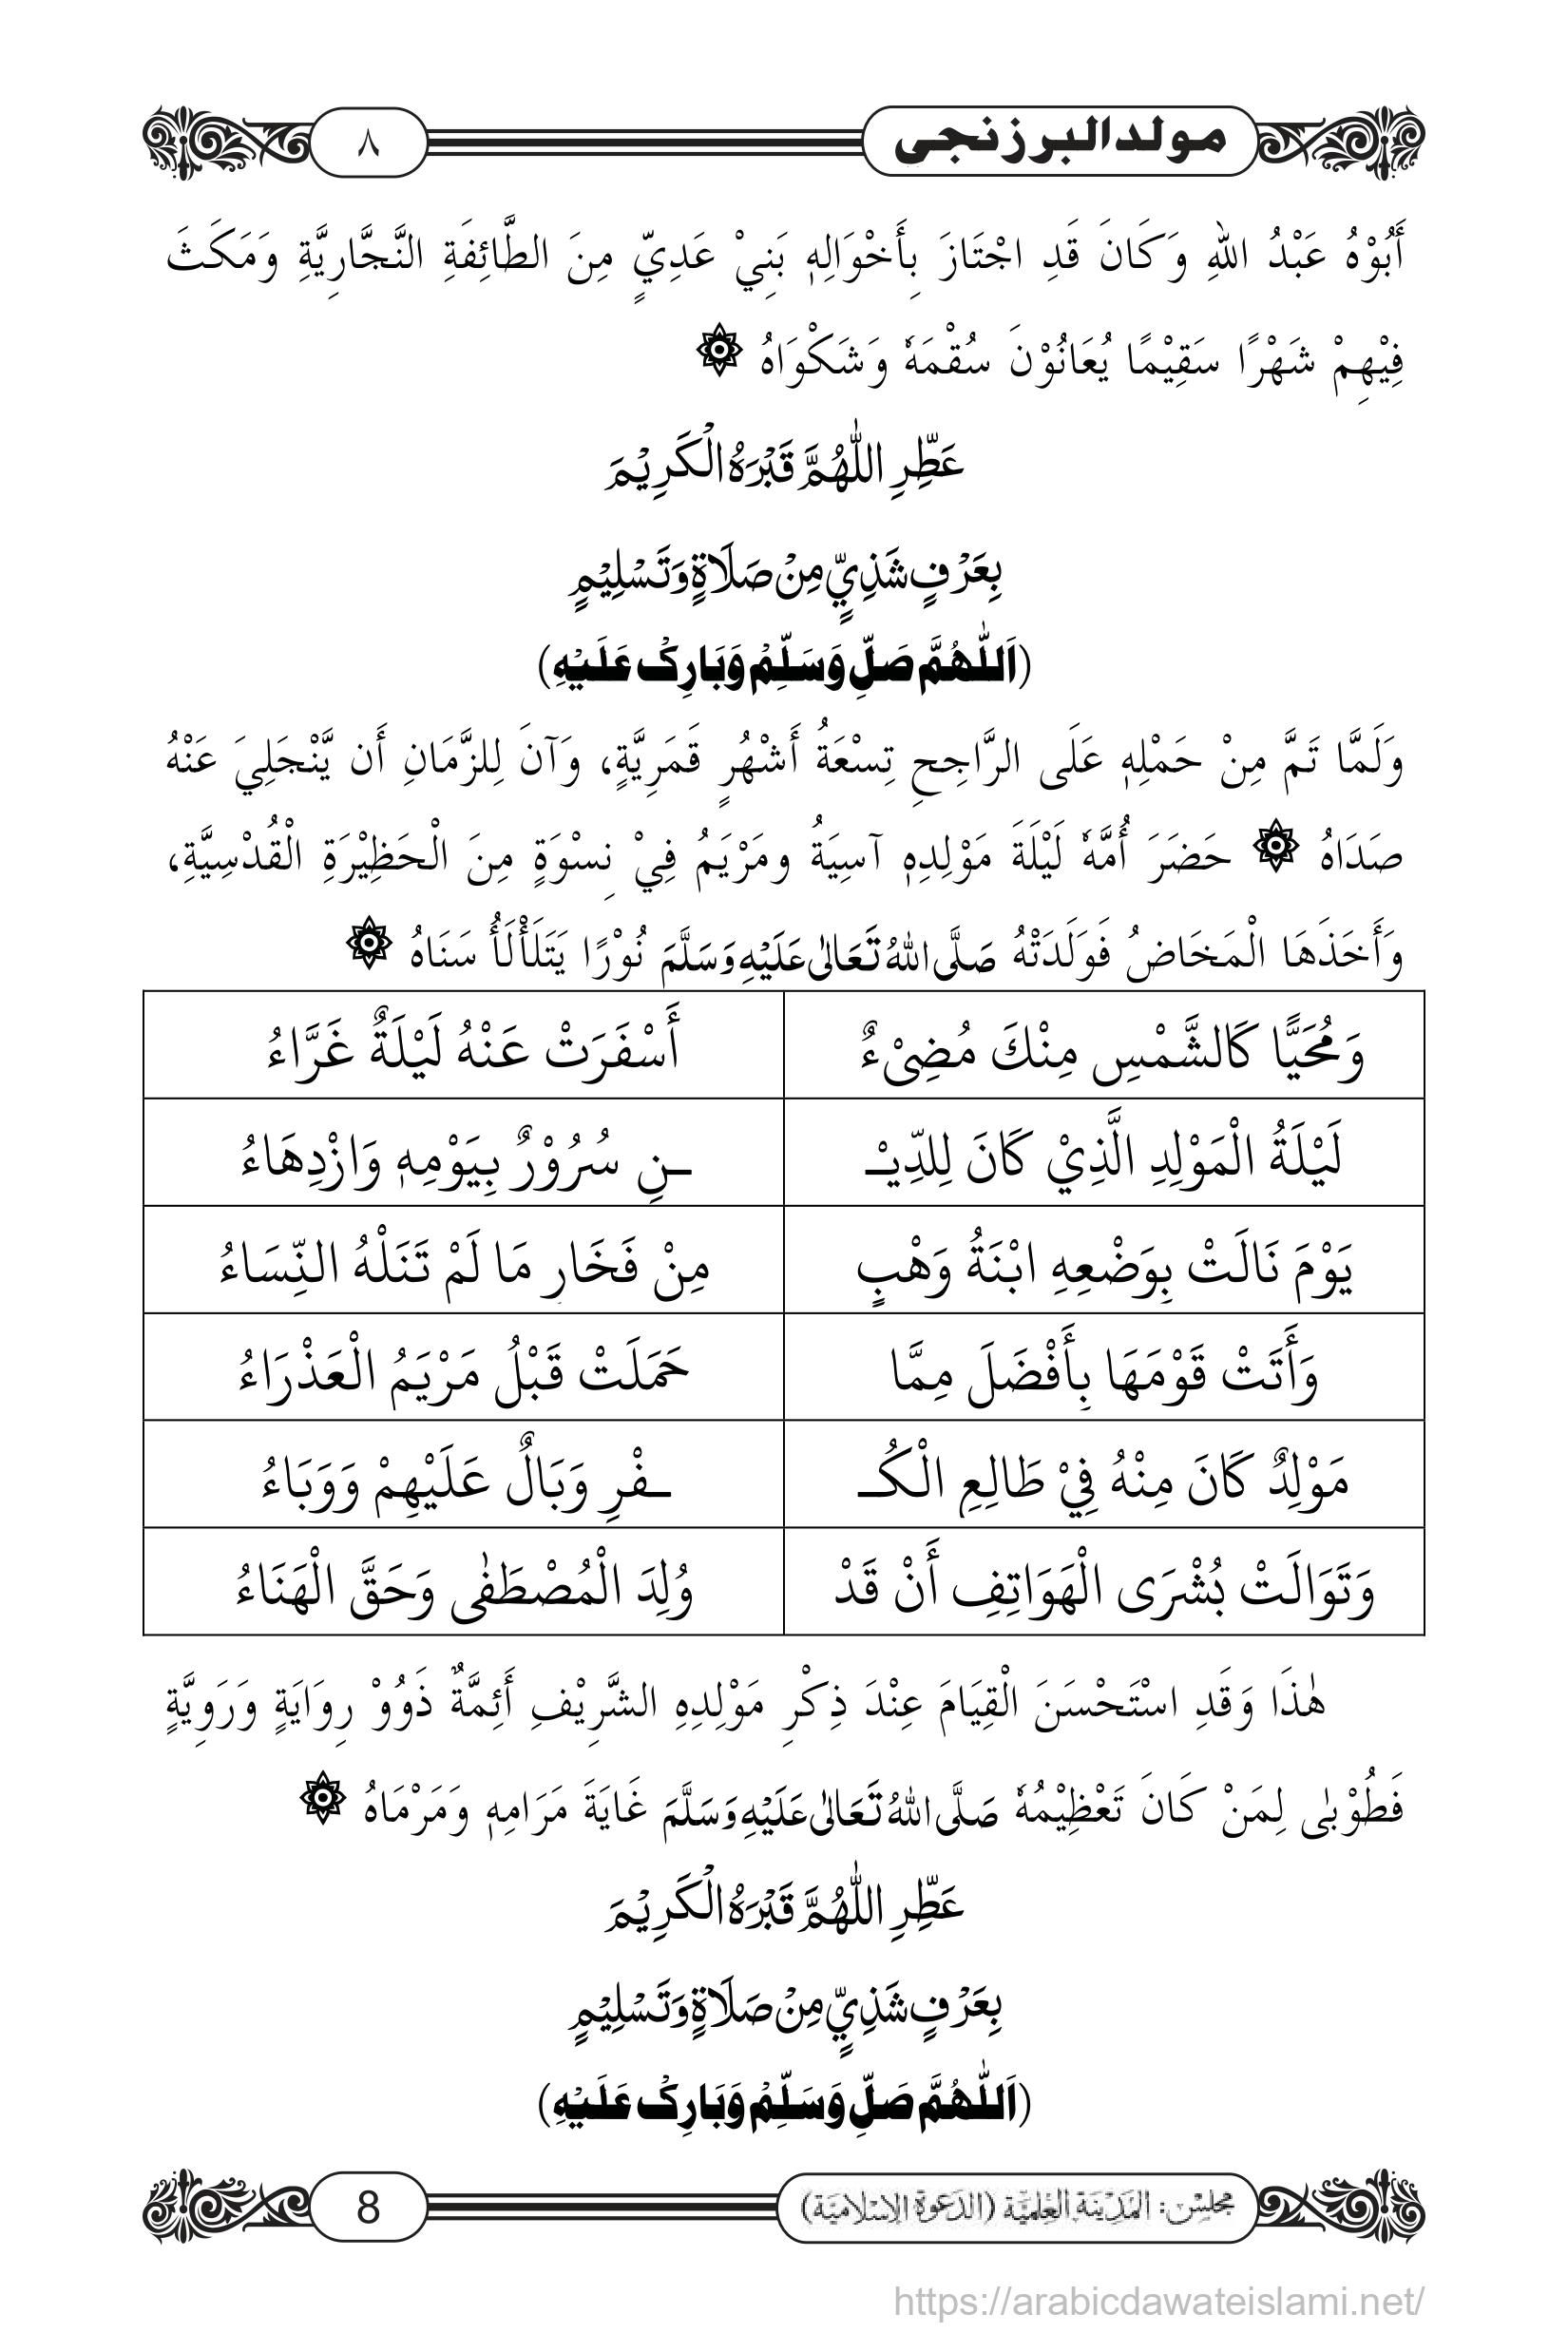 مولدالبرزنجی
٨
أَبُوْهُ عَبْدُ اللهِ وَكَانَ قَدِ اجْتَازَ بِأَخْوَالِهٖ بَنِيْ عَدِيّ مِنَ الطَّائِفَةِ النَّجَّارِيَّةِ وَمَكَثَ
فِيْهِمْ شَهْرًا سَقِيْمًا يُعَانُوْنَ سُقْمَهٗ وَشَكْوَاهُ ۞
عَطِّرِ اللّٰهُمَّ قَبْرَهُ الْكَرِيْمَ
بِعَرْفٍ شَذِيٍّ مِنْ صَلَاةٍ وَتَسْلِيْمٍ
(اَللّٰهُمَّ صَلِّ وَسَلِّمْ وَبَارِكْ عَلَيْهِ)
وَلَمَّا تَمَّ مِنْ حَمْلِهٖ عَلَى الرَّاجِحِ تِسْعَةُ أَشْهُرٍ قَمَرِيَّةٍ، وَآنَ لِلزَّمَانِ أَن يَّنْجَلِيَ عَنْهُ
صَدَاهُ ۞ حَضَرَ أُمَّهٗ لَيْلَةَ مَوْلِدِهٖ آسِيَةُ ومَرْيَمُ فِيْ نِسْوَةٍ مِنَ الْحَظِيْرَةِ الْقُدْسِيَّةِ،
وَأَخَذَهَا الْمَخَاضُ فَوَلَدَتْهُ صَلَّى اللهُ تَعَالٰى عَلَيْهِ وَسَلَّمَ نُوْرًا يَتَلَأْلَأُ سَنَاهُ ۞
وَمُحَيًّا كَالشَّمْسِ مِنْكَ مُضِىْءٌ أَسْفَرَتْ عَنْهُ لَيْلَةٌ غَرَّاءُ
لَيْلَةُ الْمَوْلِدِ الَّذِيْ كَانَ لِلدِّيْـ ـنِ سُرُوْرٌ بِيَوْمِهٖ وَازْدِهَاءُ
يَوْمَ نَالَتْ بِوَضْعِهِ ابْنَةُ وَهْبٍ مِنْ فَخَارِ مَا لَمْ تَنَلْهُ النِّسَاءُ
وَأَتَتْ قَوْمَهَا بِأَفْضَلَ مِمَّا حَمَلَتْ قَبْلُ مَرْيَمُ الْعَذْرَاءُ
مَوْلِدٌ كَانَ مِنْهُ فِيْ طَالِعِ الْكُـ ـفْرِ وَبَالٌ عَلَيْهِمْ وَوَبَاءُ
وَتَوَالَتْ بُشْرَى الْهَوَاتِفِ أَنْ قَدْ وُلِدَ الْمُصْطَفٰى وَحَقَّ الْهَنَاءُ
هٰذَا وَقَدِ اسْتَحْسَنَ الْقِيَامَ عِنْدَ ذِكْرِ مَوْلِدِهِ الشَّرِيْفِ أَئِمَّةٌ ذَوُوْ رِوَايَةٍ وَرَوِيَّةٍ
فَطُوْبٰى لِمَنْ كَانَ تَعْظِيْمُهٗ صَلَّى اللهُ تَعَالٰى عَلَيْهِ وَسَلَّمَ غَايَةَ مَرَامِهٖ وَمَرْمَاهُ ۞
عَطِّرِ اللّٰهُمَّ قَبْرَهُ الْكَرِيْمَ
بِعَرْفٍ شَذِيٍّ مِنْ صَلَاةٍ وَتَسْلِيْمٍ
(اَللّٰهُمَّ صَلِّ وَسَلِّمْ وَبَارِكْ عَلَيْهِ)
مجلس: المَدِيْنَة العِلْمِيَّة (الدَعوة الإسْلَاميَة)
8
https://arabicdawateislami.net/